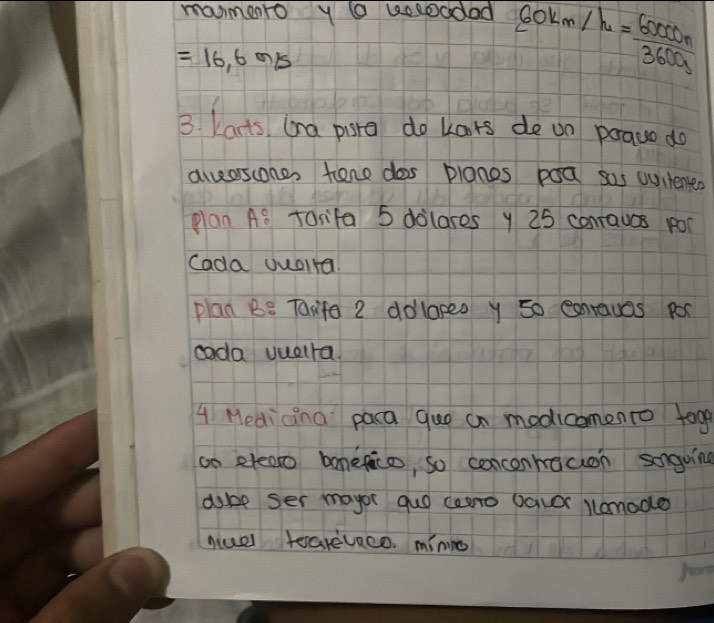 y la velocidad 60km/h = 60000m
= 16,6 m/s 3600s
3. Karts. Una pista de karts de un parque de
tiene dos planes para sus visitantes
plan A: Tarifa 5 dólares y 25 centavos por
cada vuelta.
plan B: Tarifa 2 dolares y 50 centavos por
cada vuelta.
4 Medicina: para que un medicamento tenga
un efecto benéfico, so concentración sanguine
debe ser mayor que cierto valor llamado
nivel mímino